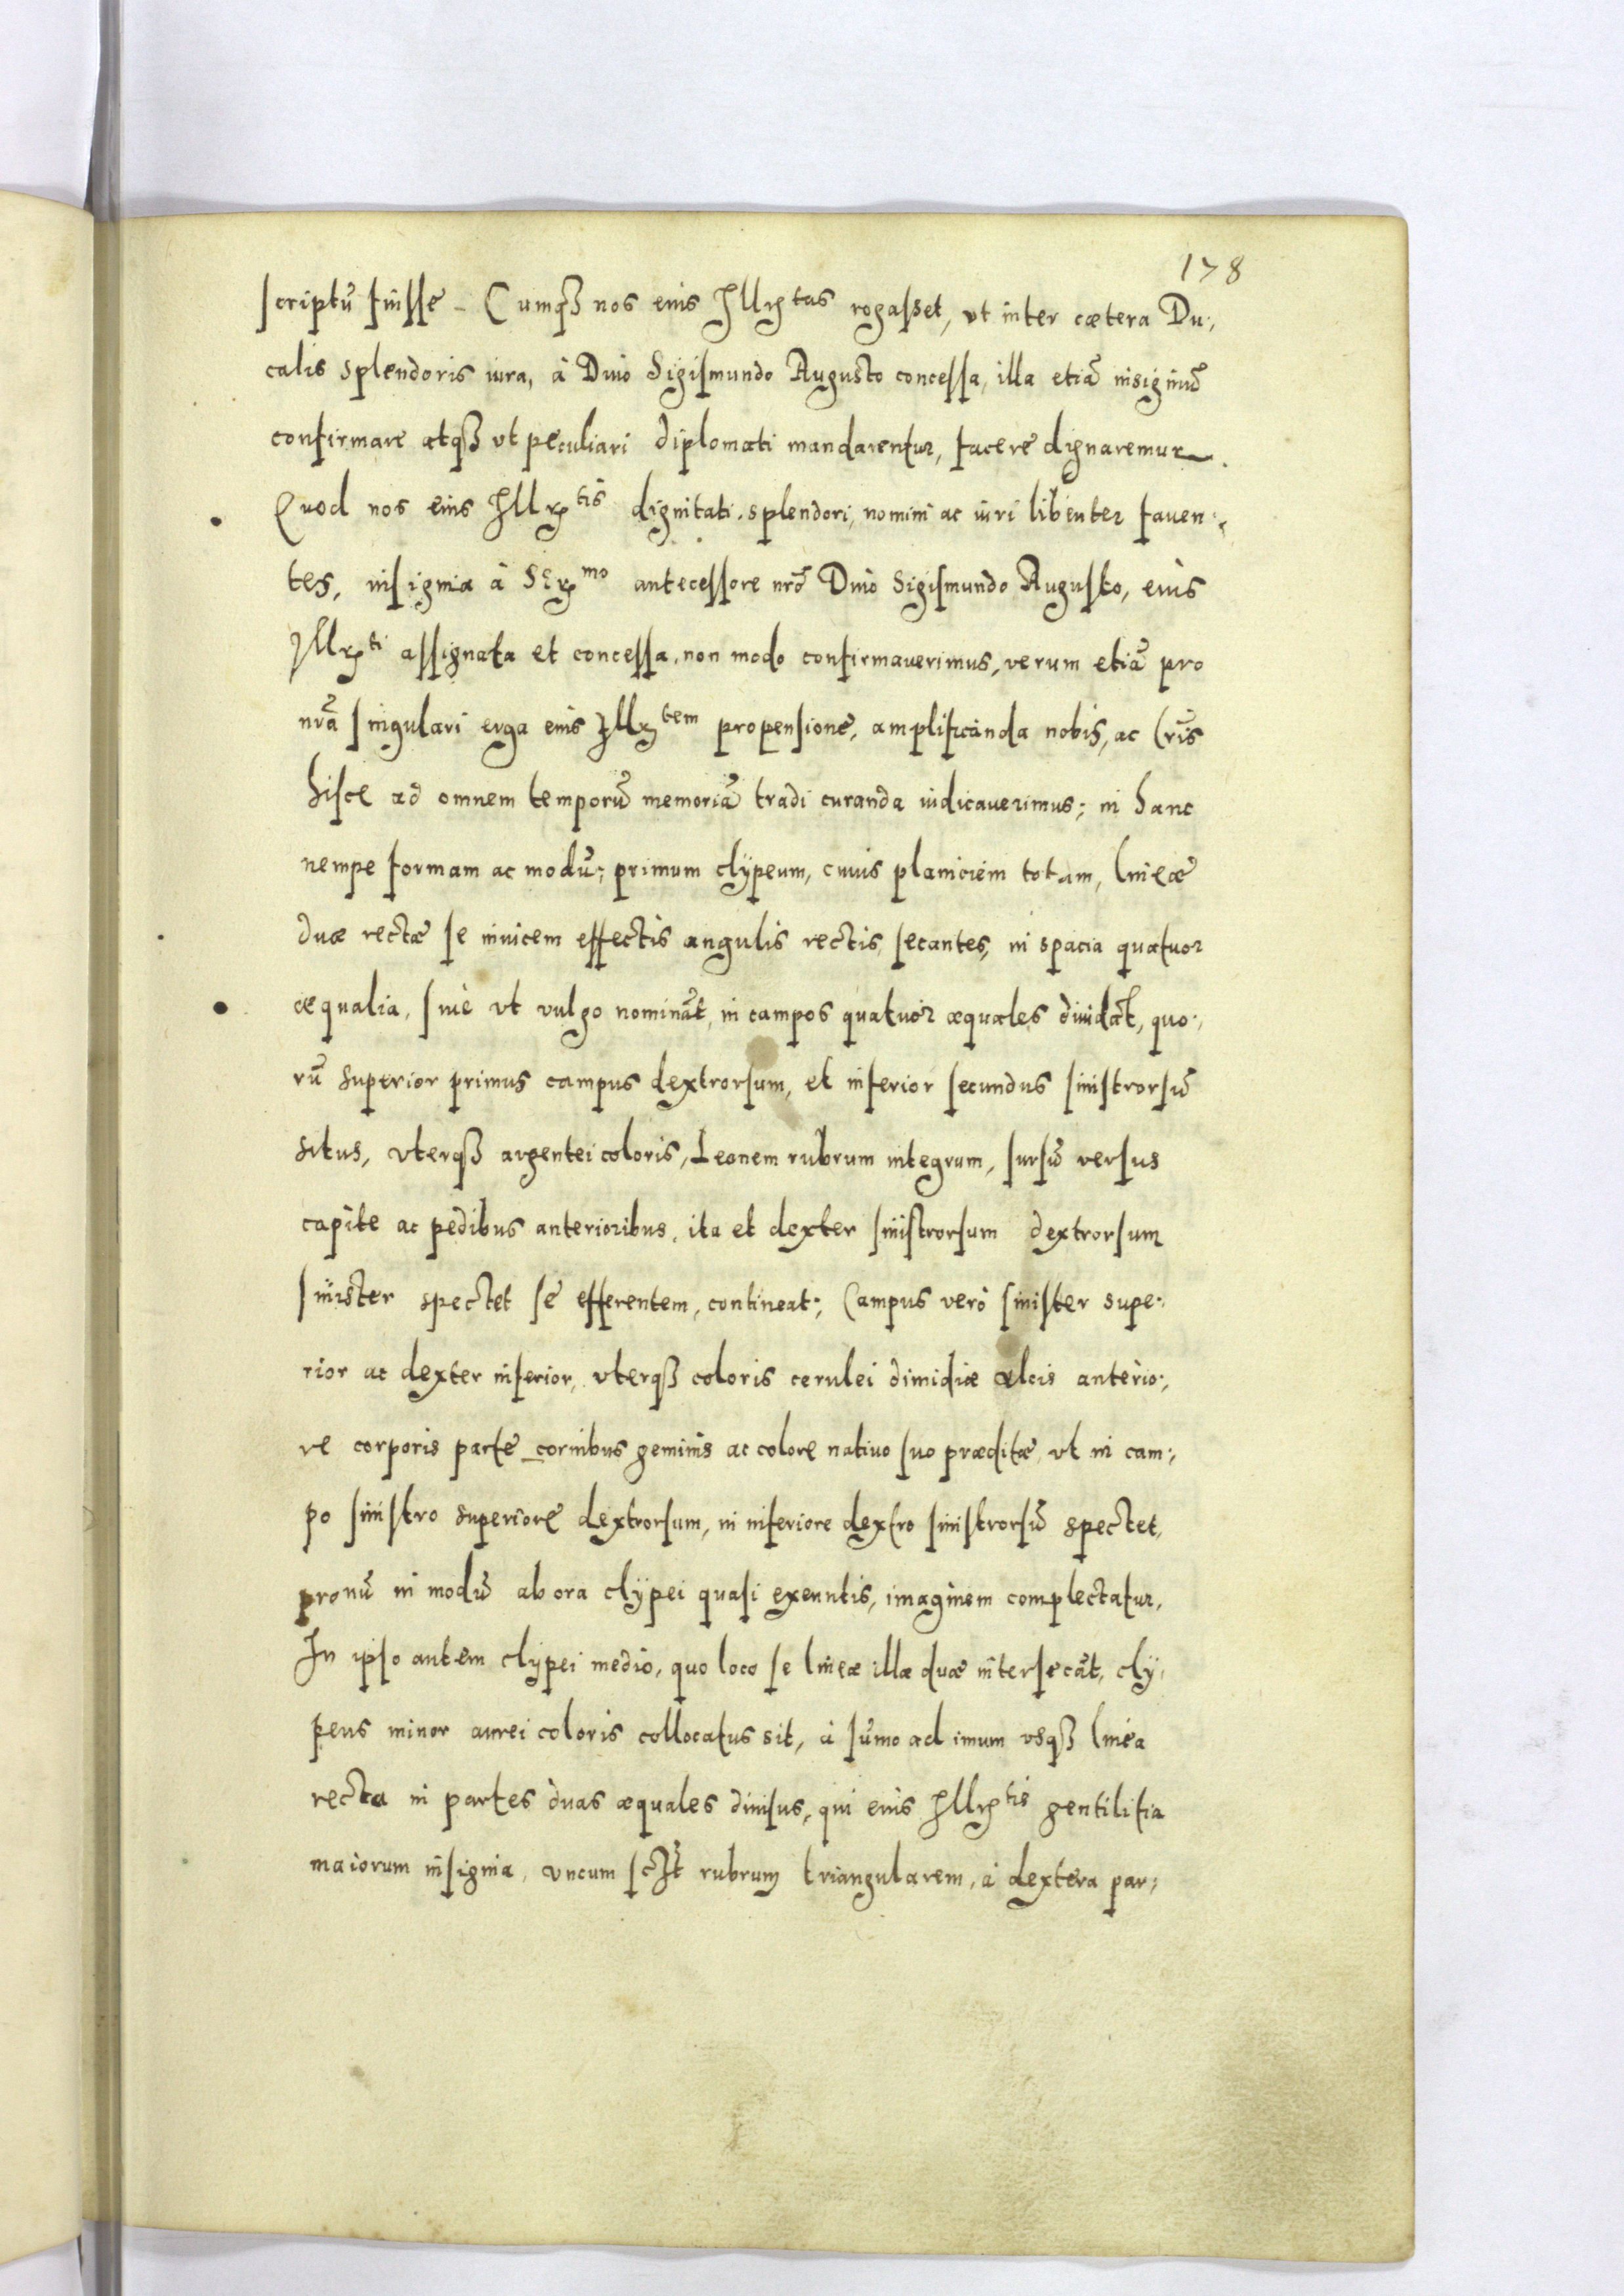 178
scriptū fuisse – Cumqȝ nos eius Illr̄tas rogasset, vt inter cætera Du:
calis splendoris iura, à Diuo Sigismundo Augusto concessa, illa etiā insigniū
confirmare atqȝ vt peculiari diplomati mandarentur, facere dignaremur.
Quod nos eius Illr̄tis dignitati, splendori, nomini ac iuri libenter fauen:
tes, insignia à Ser̄mo antecessore nrō Diuo Sigismundo Augusto, eius
Illr̄ti assignata et concessa, non modo confirmaverimus, verum etiā pro
nrā singulari erga eius Illr̄tem propensione, amplificanda nobis, ac lrīs
hisce ad omnem temporū memoriā tradi curanda iudicauerimus; in hanc
nempe formam ac modū; primum clÿpeum, cuius planiciem totam, lineæ
duæ rectæ se inuicem effectis angulis rectis secantes, in spacia quatuor
æqualia, siue vt vulgo nominā̄t, in campos quatuor æquales diuidāt, quo:
rū superior primus campus dextrorsum, et inferior secundus sinistrorsū
situs, vterqȝ argentei coloris, Leonem rubrum integrum, sursū versus
capite ac pedibus anterioribus, ita et dexter sinistrorsum dextrorsum
sinister spectet se efferentem, contineat; Campus verò sinister supe:
rior ac dexter inferior, vterqȝ coloris cerulei dimidiæ alcis anterio:
re corporis parte cornibus geminis ac colore natiuo suo præditæ, vt in cam:
po sinistro superiore dextrorsum, in inferiore dextro sinistrorsū spectet,
pronū in modū ab ora clÿpei quasi exeuntis, imaginem complectatur.
In ipso autem clypei medio, quo loco se lineæ illæ duæ intersecāt, clÿ:
peus minor aurei coloris collocatus sit, à sūmo ad imum vsqȝ linea
recta in partes duas æquales diuisus, qui eius Illr̄tis gentilitia
maiorum insignia, vncum rubrum triangularem, à dextera par: